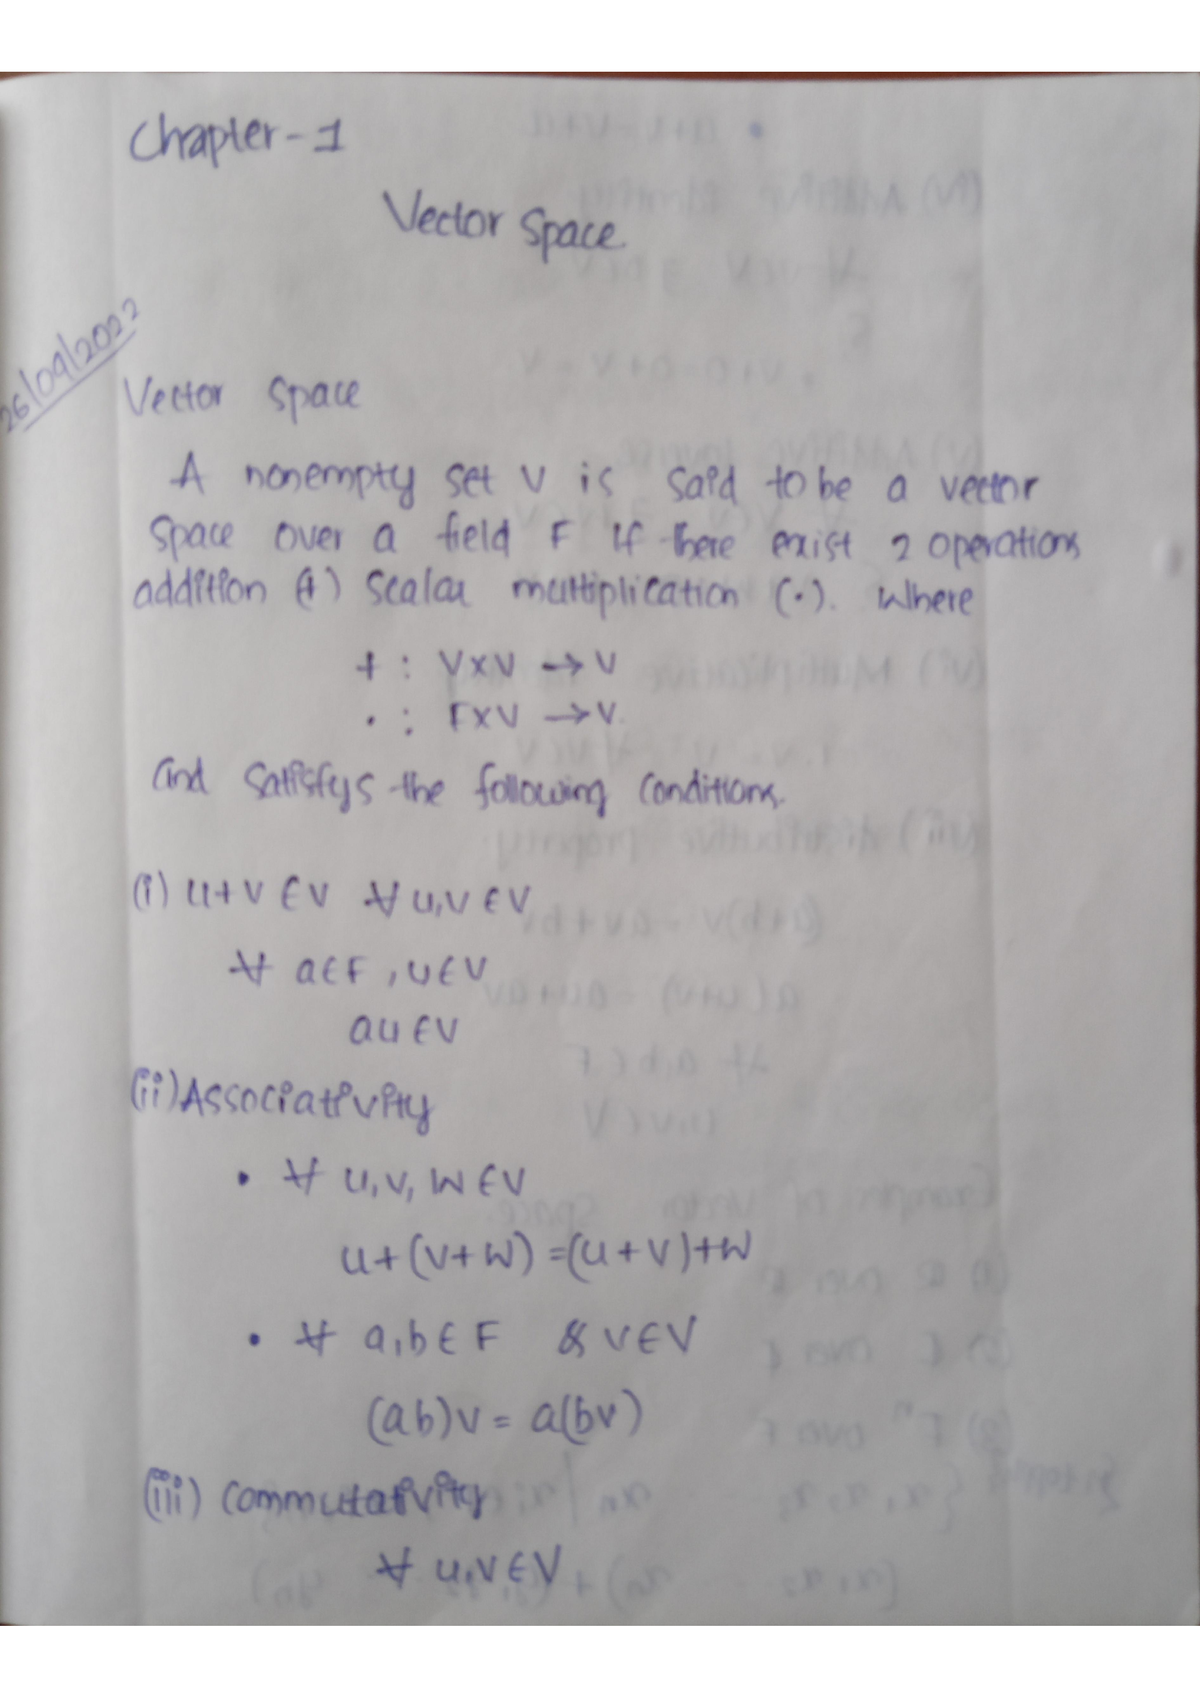 Chapter-1
Vector Space
26/09/2022
Vector Space
A nonempty set V is said to be a vector
space over a field F if there exist 2 operations
addition (+) scalar multiplication (·). Where
+ : V×V → V
· : F×V → V.
and satisfys the following conditions.
(i) u+v ∈ V ∀ u,v ∈ V
∀ a ∈ F , u ∈ V
au ∈ V
(ii) Associativity
• ∀ u, v, w ∈ V
u+(v+w) = (u+v)+w
• ∀ a,b ∈ F & v ∈ V
(ab)v = a(bv)
(iii) commutativity
∀ u,v ∈ V